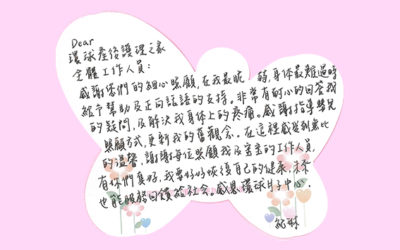 Dear
環球產後護理之家
全體工作人員:
感謝你們的細心照顧,在我最脆弱,身体最難過時
給予幫助及正向話語的支持。非常有耐心的回答我
的疑問,及解決我身体上的疼痛。感謝指導嬰兒
照顧方式,更新我的舊觀念。在這裡感受到無比
的溫馨,謝謝每位照顧我及寶寶的工作人員,
有你們真好,我要好好恢復自己的健康,未來
也能服務回饋給社會。感恩環球月子中心.